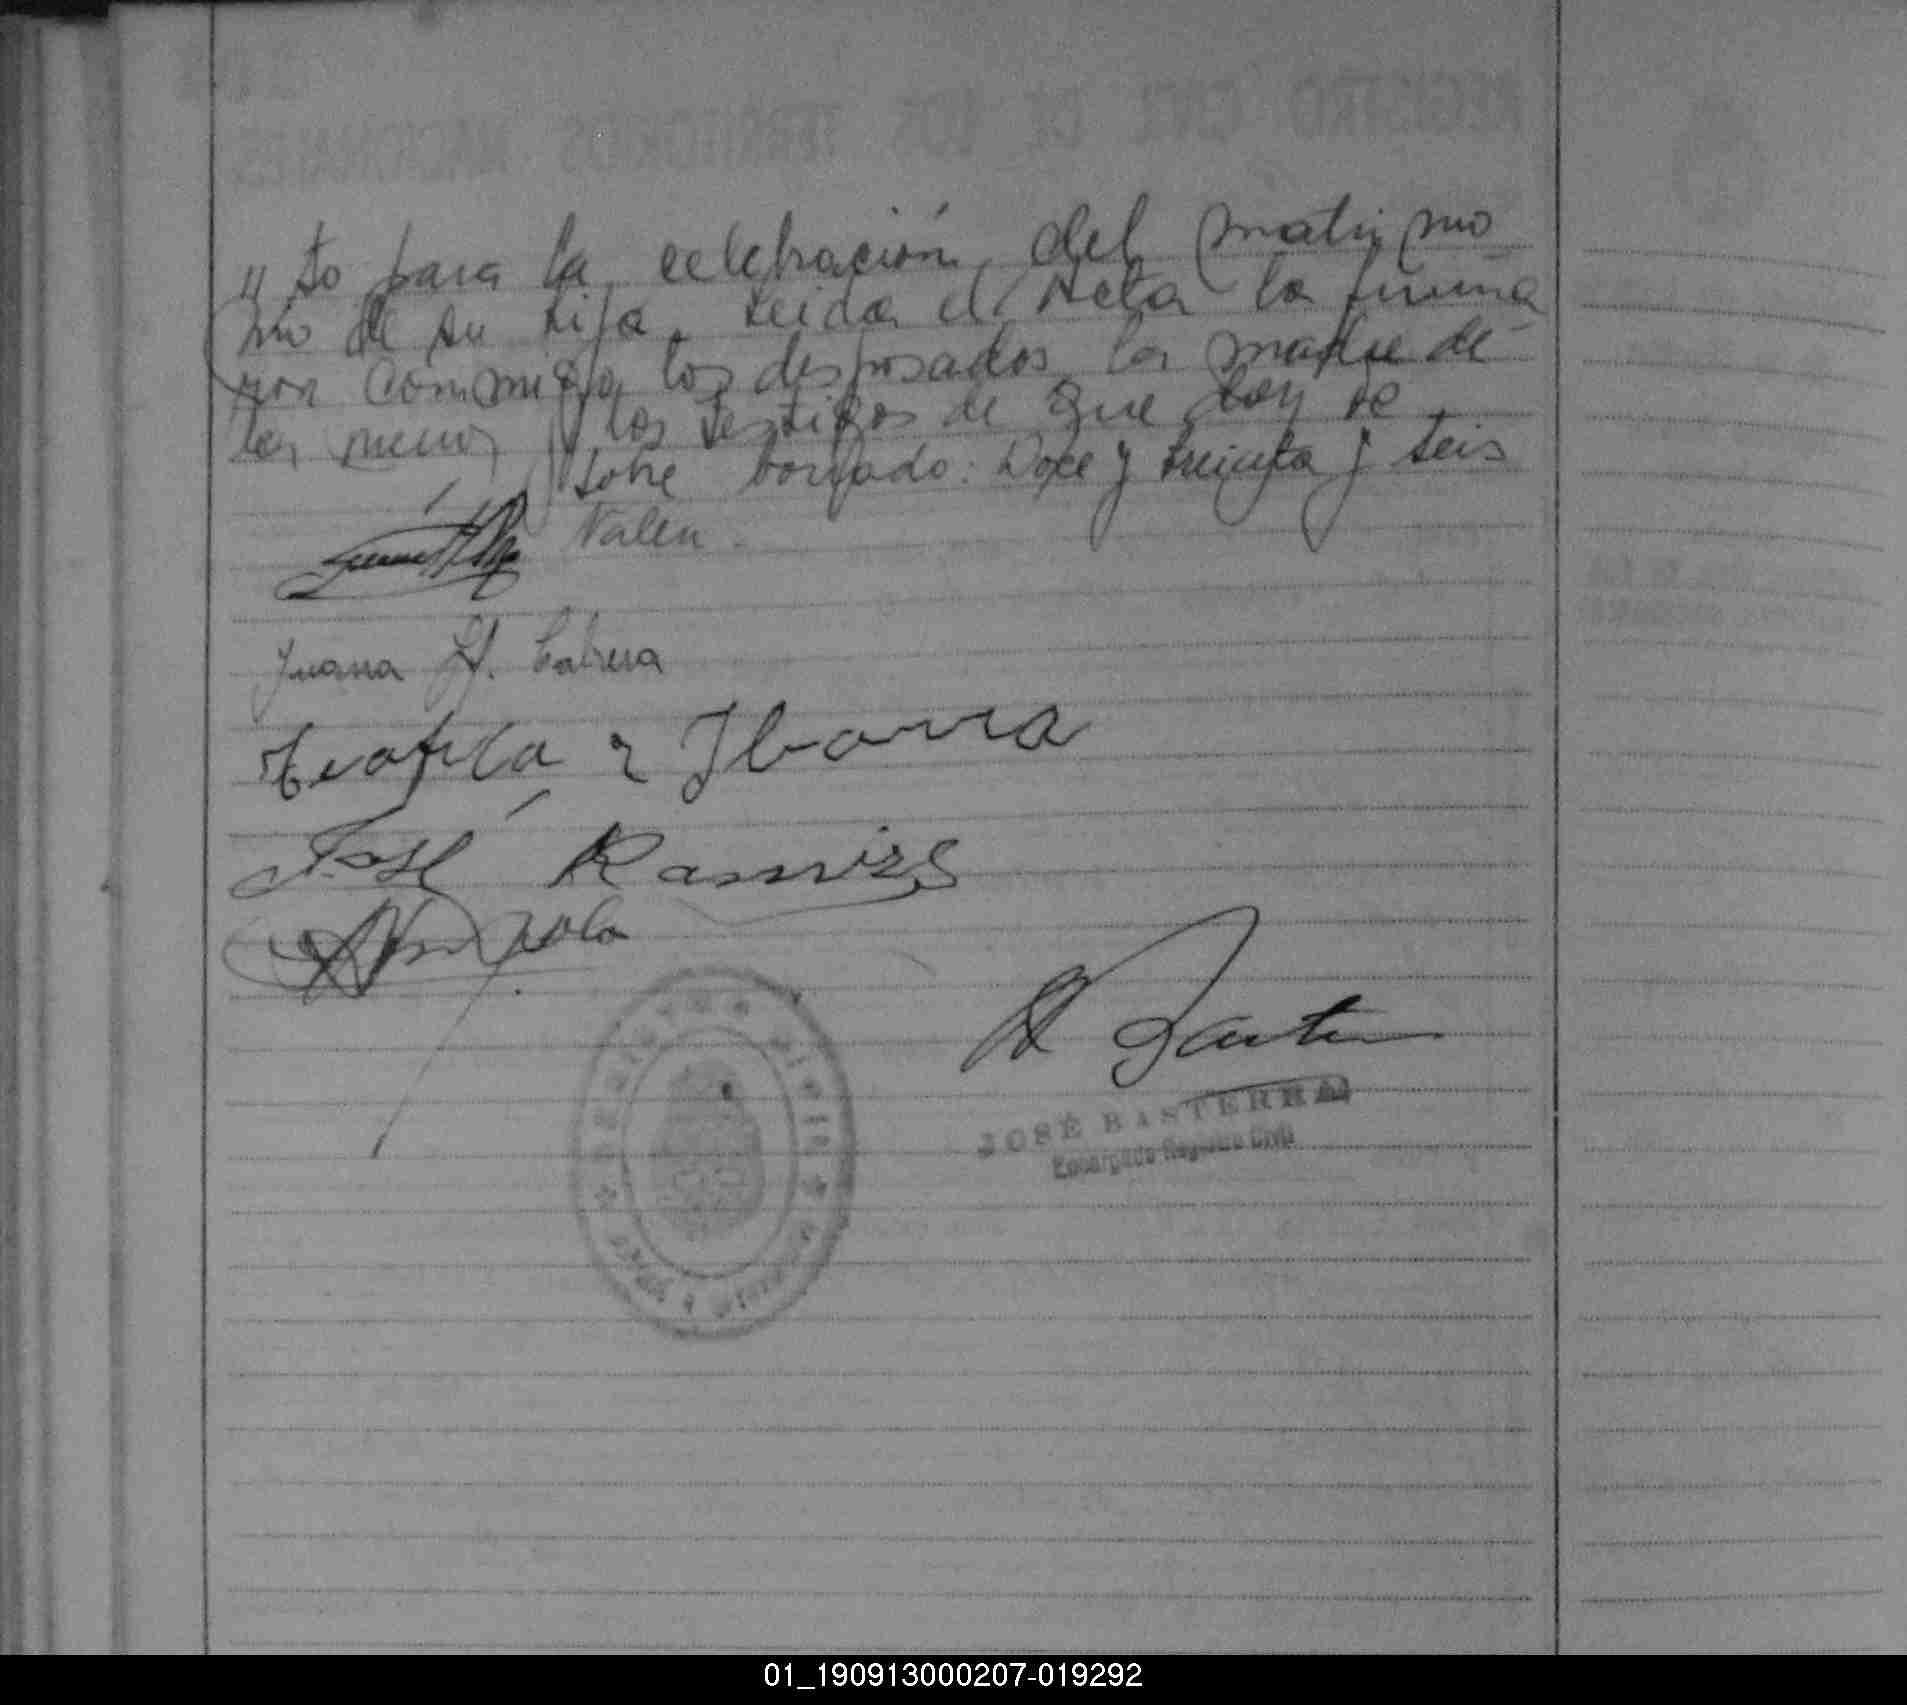 " to para la celebración del matrimo
nio de su hija. Leida el Acta la firma
ron conmigo los desposados la madre de
la menor y los testigos de que doy fe
Sobre borrado: Doce y treinta y seis
Valen.
Juana H. Cabrera
Teofila r Ibarra
José Ramirez
JOSÉ BASTERRA
Encargado Registro Civil
REGISTRO CIVIL DE LOS TERRITORIOS NACIONALES
01_190913000207-019292